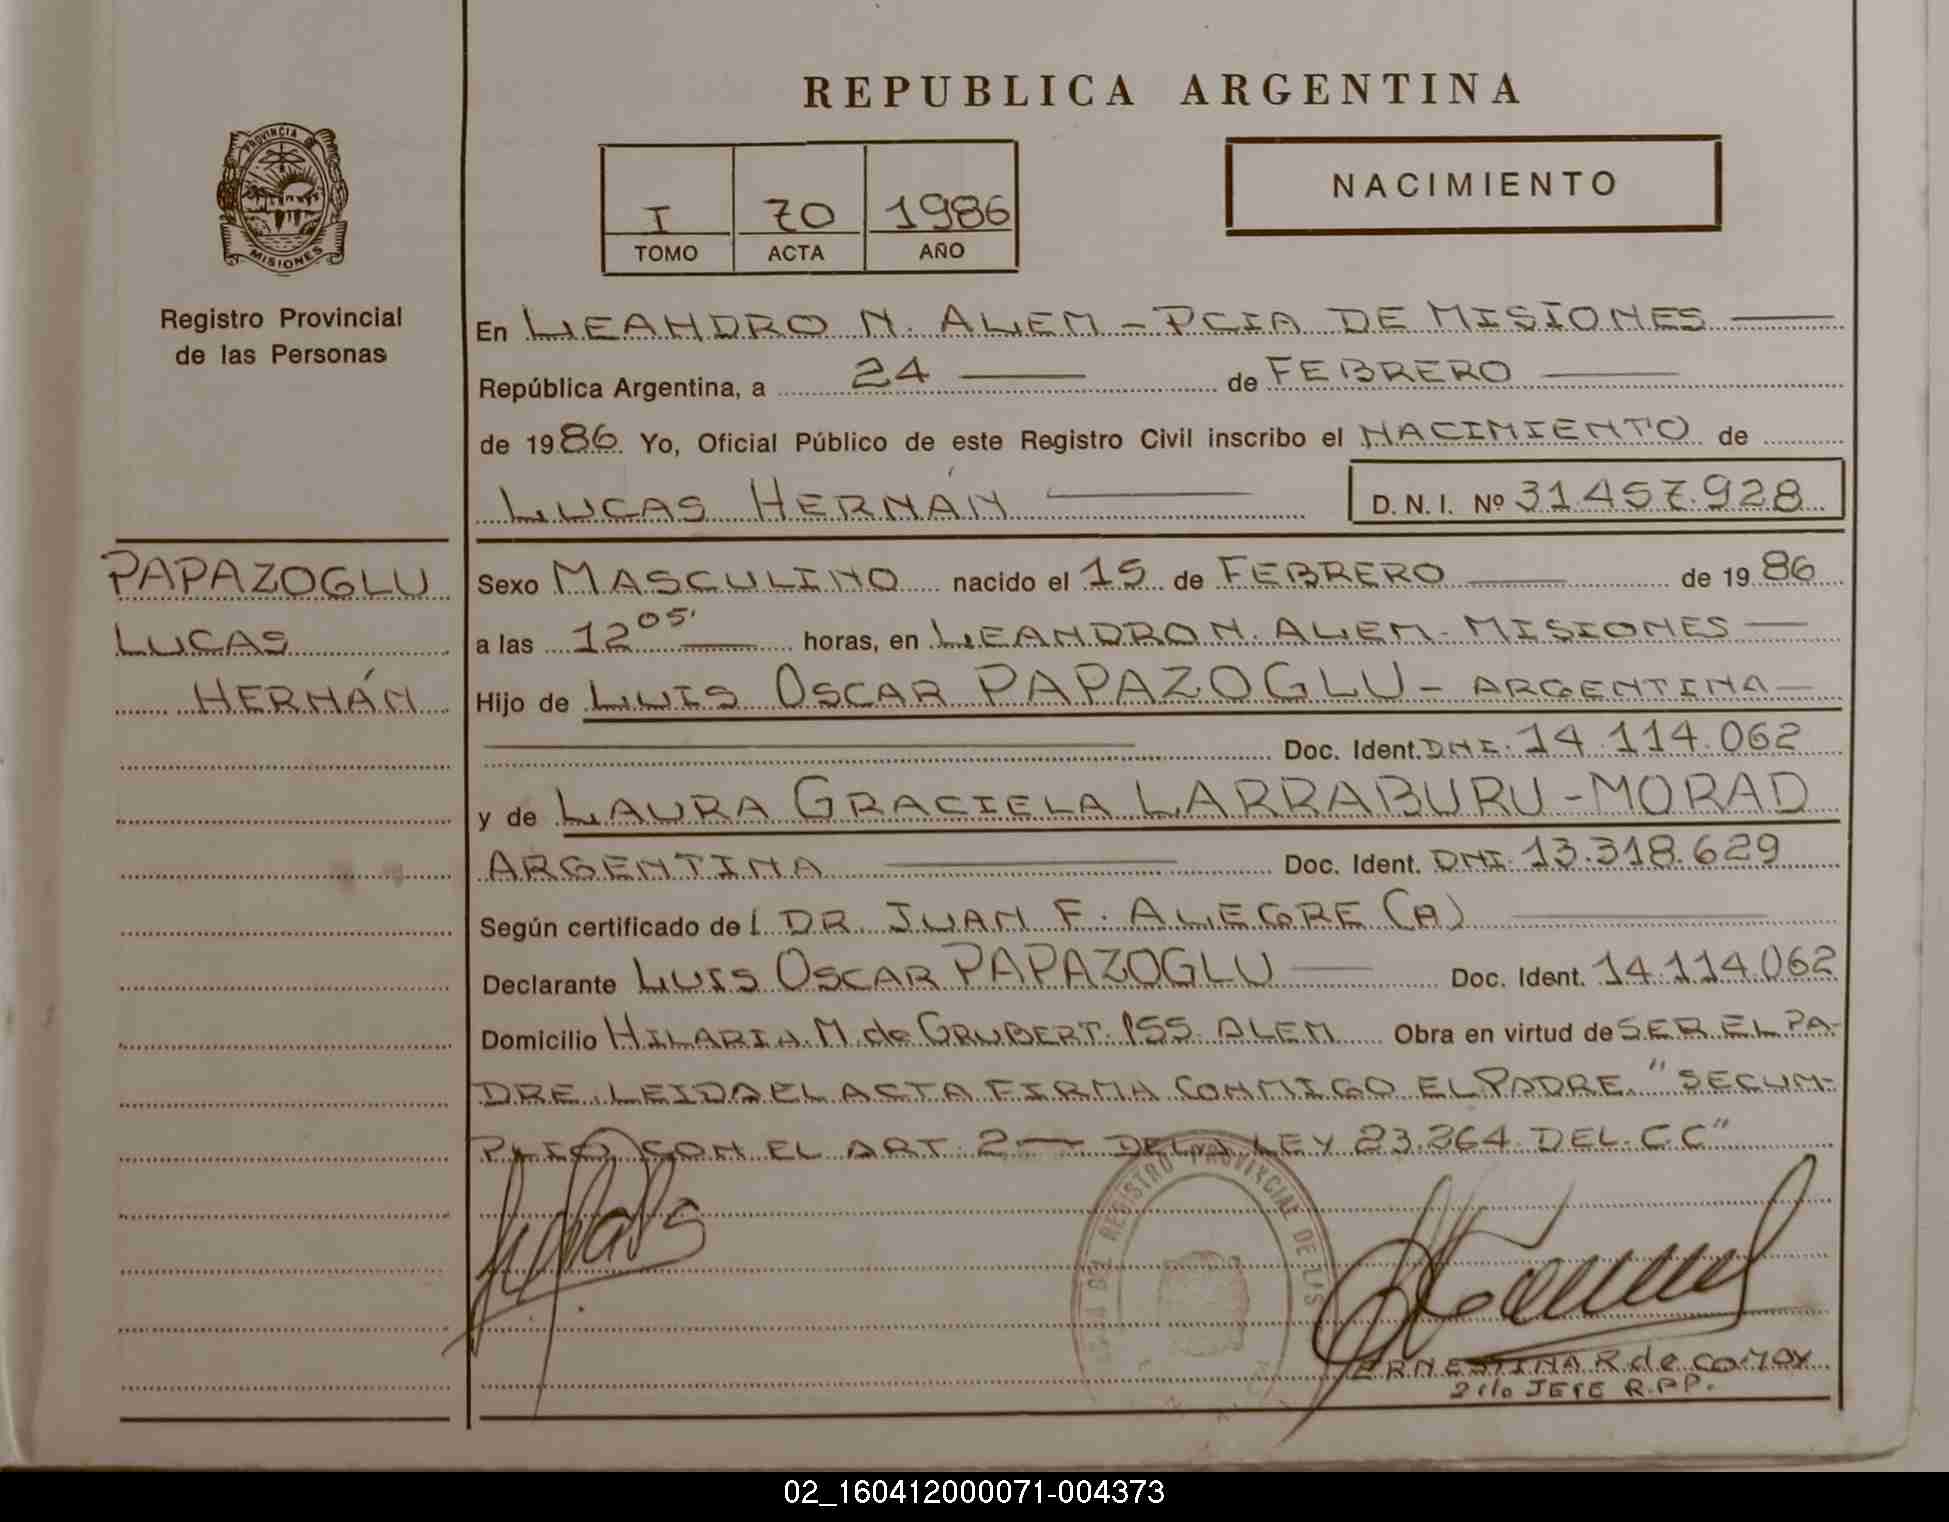 REPUBLICA ARGENTINA
PROVINCIA
MISIONES
Registro Provincial
de las Personas
I 70 1986
TOMO ACTA AÑO
NACIMIENTO
En LEANDRO N. ALEM - PCIA DE MISIONES
República Argentina, a 24 de FEBRERO
de 1986 Yo, Oficial Público de este Registro Civil inscribo el NACIMIENTO de
LUCAS HERNÁN D.N.I. Nº 31.457.928
PAPAZOGLU
LUCAS
HERNÁN
Sexo MASCULINO nacido el 15 de FEBRERO de 1986
a las 12 05' horas, en LEANDRO N. ALEM - MISIONES
Hijo de LUIS OSCAR PAPAZOGLU - ARGENTINA -
Doc. Ident. DNI. 14.114.062
y de LAURA GRACIELA LARRABURU - MORAD
ARGENTINA Doc. Ident. DNI. 13.318.629
Según certificado de DR. JUAN F. ALEGRE (A)
Declarante LUIS OSCAR PAPAZOGLU Doc. Ident. 14.114.062
Domicilio M. de GRUBERT. 155. ALEM Obra en virtud de SER EL PA-
DRE. LEIDA EL ACTA FIRMA CONMIGO EL PADRE. "SE CUM-
PLIO CON EL ART. 2 DE LA LEY 23.264 DEL C.C"
REGISTRO PROVINCIAL DE LAS
ERNESTINA R de
JEFE R.P.P.
02_160412000071-004373